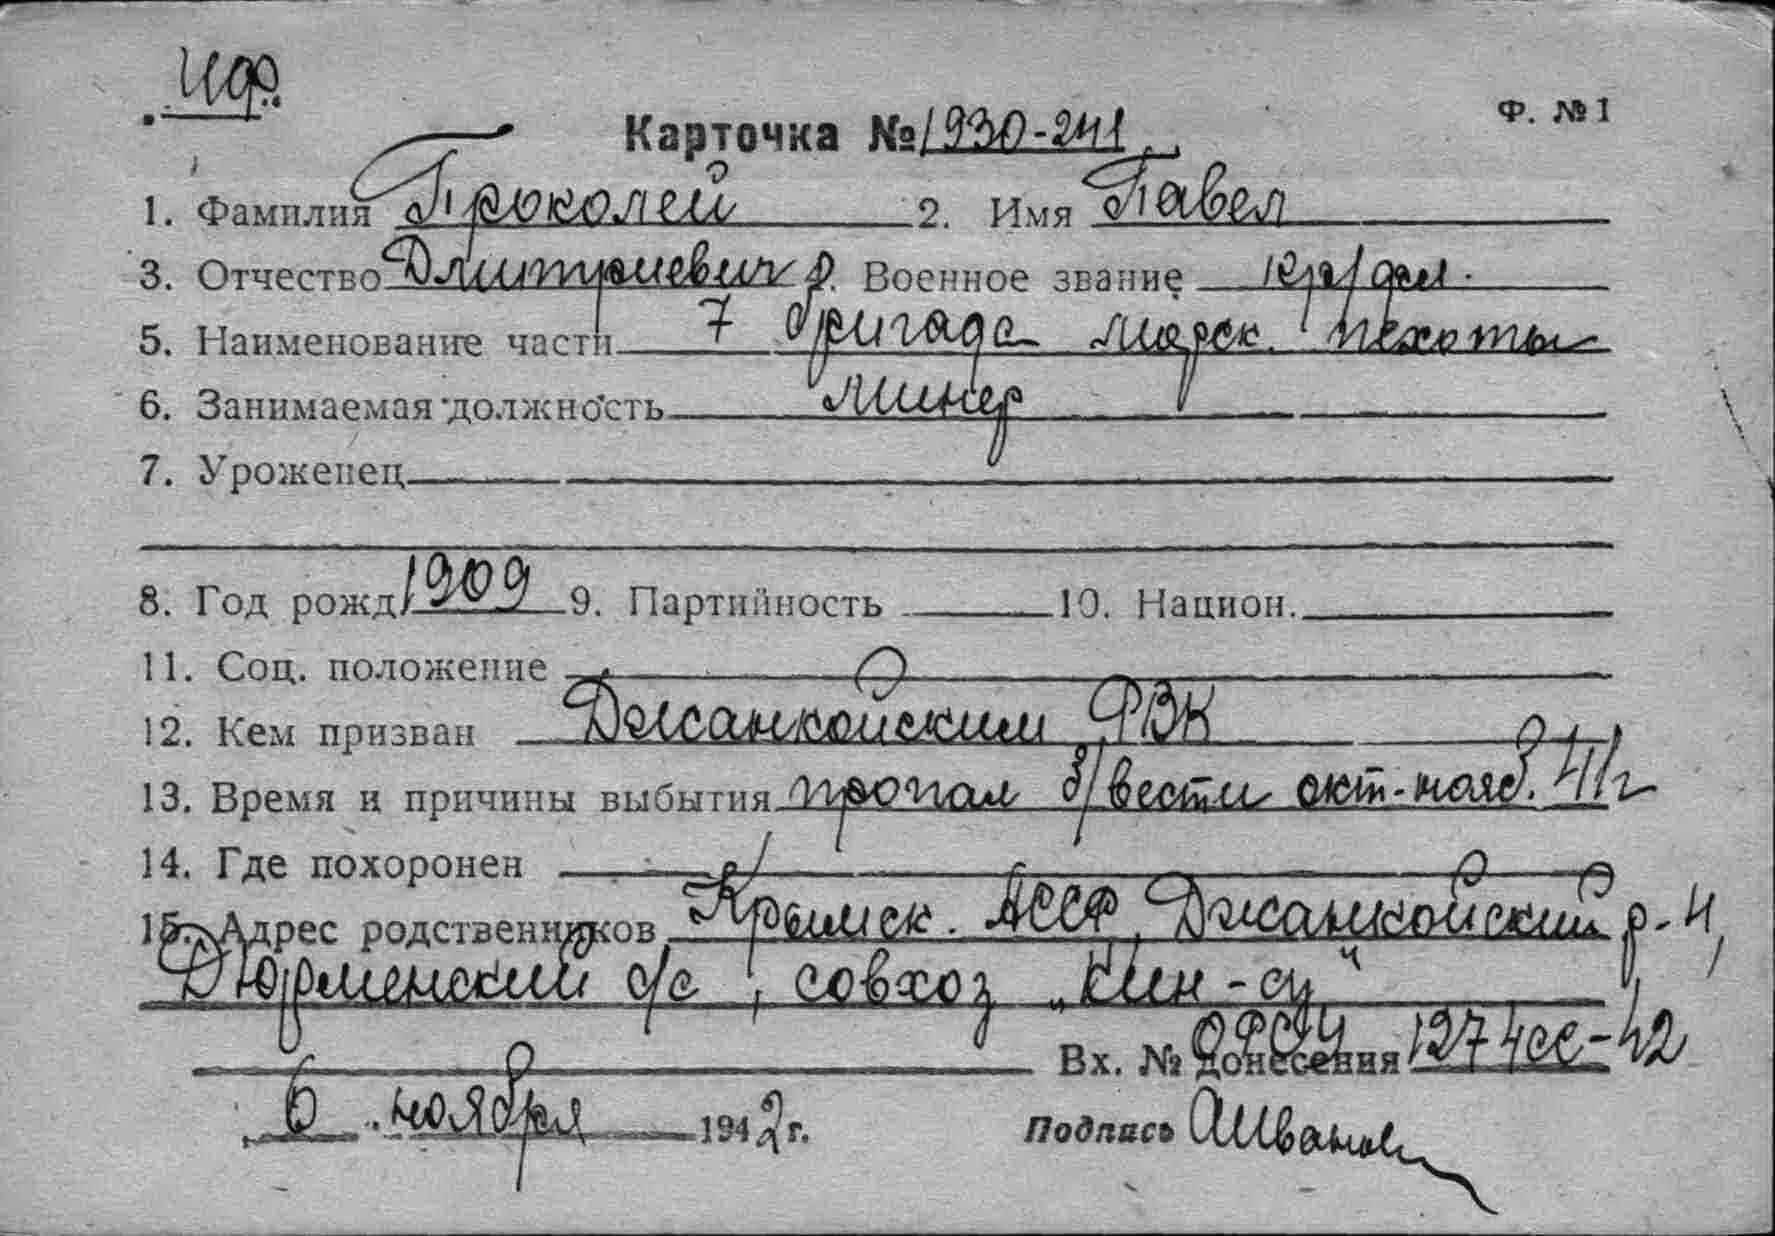 ЧФ.
Ф. №1
Карточка №1930-241
1. Фамилия Проколей 2. Имя Павел
3. Отчество Дмитриевич 8. Военное звание кр/фл.
5. Наименование части 7 бригада морск. пехоты
6. Занимаемая должность минер
7. Уроженец
8. Год рожд. 1909 9. Партийность 10. Национ.
11. Соц. положение
12. Кем призван Джанкойским РВК
13. Время и причины выбытия пропал б/вести окт.-нояб. 41г
14. Где похоронен
15. Адрес родственников Крымск. АССР, Джанкойский р-н,
Дюрменский с/с, совхоз „Кин-су“
Вх. № донесения 1274сс-42
6 ноября 1942г.
Подпись АИванов